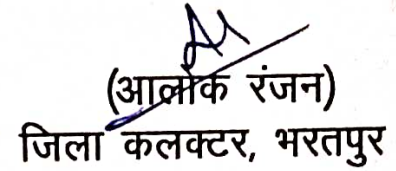 (आलोक रंजन)
जिला कलक्टर, भरतपुर